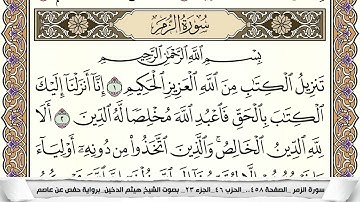 سُورَةُ الزُّمَرِ
بِسْمِ اللَّهِ الرَّحْمَٰنِ الرَّحِيمِ
تَنزِيلُ الْكِتَابِ مِنَ اللَّهِ الْعَزِيزِ الْحَكِيمِ ١ إِنَّا أَنزَلْنَا إِلَيْكَ
الْكِتَابَ بِالْحَقِّ فَاعْبُدِ اللَّهَ مُخْلِصًا لَّهُ الدِّينَ ٢ أَلَا
لِلَّهِ الدِّينُ الْخَالِصُ وَالَّذِينَ اتَّخَذُوا مِن دُونِهِ أَوْلِيَاءَ
سورة الزمر _الصفحة ٤٥٨_ الحزب ٤٦_الجزء ٢٣_ بصوت الشيخ هيثم الدخين_ برواية حفص عن عاصم